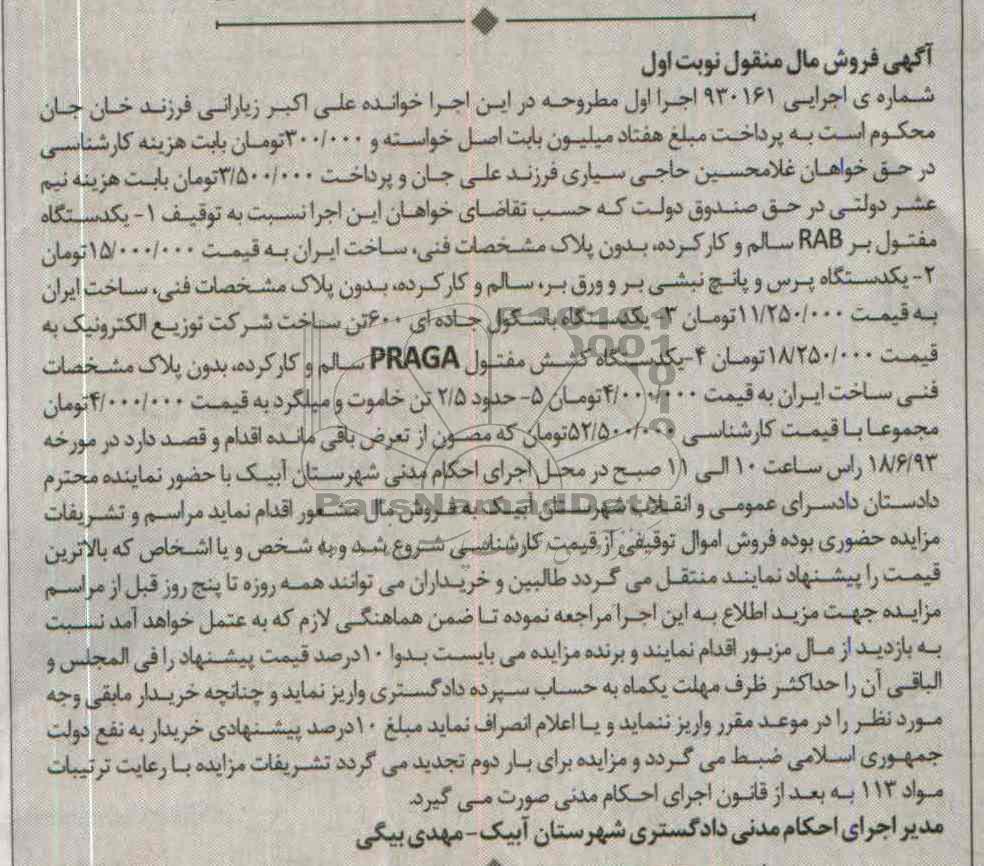 آگهی فروش مال منقول نوبت اول
شماره ی اجرایی ۹۳۰۱۶۱ اجرا اول مطروحه در این اجرا خوانده علی اکبر زیارانی فرزند خان جان
محکوم است به پرداخت مبلغ هفتاد میلیون بابت اصل خواسته و ۳۰۰/۰۰۰تومان بابت هزینه کارشناسی
در حق خواهان غلامحسین حاجی سیاری فرزند علی جان و پرداخت ۳/۵۰۰/۰۰۰تومان بابت هزینه نیم
عشر دولتی در حق صندوق دولت که حسب تقاضای خواهان این اجرا نسبت به توقیف ۱- یکدستگاه
مفتول بر RAB سالم و کارکرده، بدون پلاک مشخصات فنی، ساخت ایران به قیمت ۱۵/۰۰۰/۰۰۰تومان
۲- یکدستگاه پرس و پانچ نبشی بر و ورق بر، سالم و کارکرده، بدون پلاک مشخصات فنی، ساخت ایران
به قیمت ۱۱/۲۵۰/۰۰۰تومان ۳- یکدستگاه باسکول جاده ای ۶۰۰تن ساخت شرکت توزیع الکترونیک به
قیمت ۱۸/۲۵۰/۰۰۰تومان ۴-یکدستگاه کشش مفتول PRAGA سالم و کارکرده، بدون پلاک مشخصات
فنی ساخت ایران به قیمت ۴/۰۰۰/۰۰۰تومان ۵- حدود ۲/۵ تن خاموت و میلگرد به قیمت ۴/۰۰۰/۰۰۰تومان
مجموعا با قیمت کارشناسی ۵۲/۵۰۰/۰۰۰تومان که مصون از تعرض باقی مانده اقدام و قصد دارد در مورخه
۱۸/۶/۹۳ راس ساعت ۱۰ الی ۱۱ صبح در محل اجرای احکام مدنی شهرستان آبیک با حضور نماینده محترم
دادستان دادسرای عمومی و انقلاب شهرستان آبیک به فروش مال مشعور اقدام نماید مراسم و تشریفات
مزایده حضوری بوده فروش اموال توقیفی از قیمت کارشناسی شروع شد و به شخص و یا اشخاص که بالاترین
قیمت را پیشنهاد نمایند منتقل می گردد طالبین و خریداران می توانند همه روزه تا پنج روز قبل از مراسم
مزایده جهت مزید اطلاع به این اجرا مراجعه نموده تا ضمن هماهنگی لازم که به عتمل خواهد آمد نسبت
به بازدید از مال مزبور اقدام نمایند و برنده مزایده می بایست بدوا ۱۰درصد قیمت پیشنهاد را فی المجلس و
الباقی آن را حداکثر ظرف مهلت یکماه به حساب سپرده دادگستری واریز نماید و چنانچه خریدار مابقی وجه
مورد نظر را در موعد مقرر واریز ننماید و یا اعلام انصراف نماید مبلغ ۱۰درصد پیشنهادی خریدار به نفع دولت
جمهوری اسلامی ضبط می گردد و مزایده برای بار دوم تجدید می گردد تشریفات مزایده با رعایت ترتیبات
مواد ۱۱۳ به بعد از قانون اجرای احکام مدنی صورت می گیرد.
مدیر اجرای احکام مدنی دادگستری شهرستان آبیک-مهدی بیگی
ParsNamadData